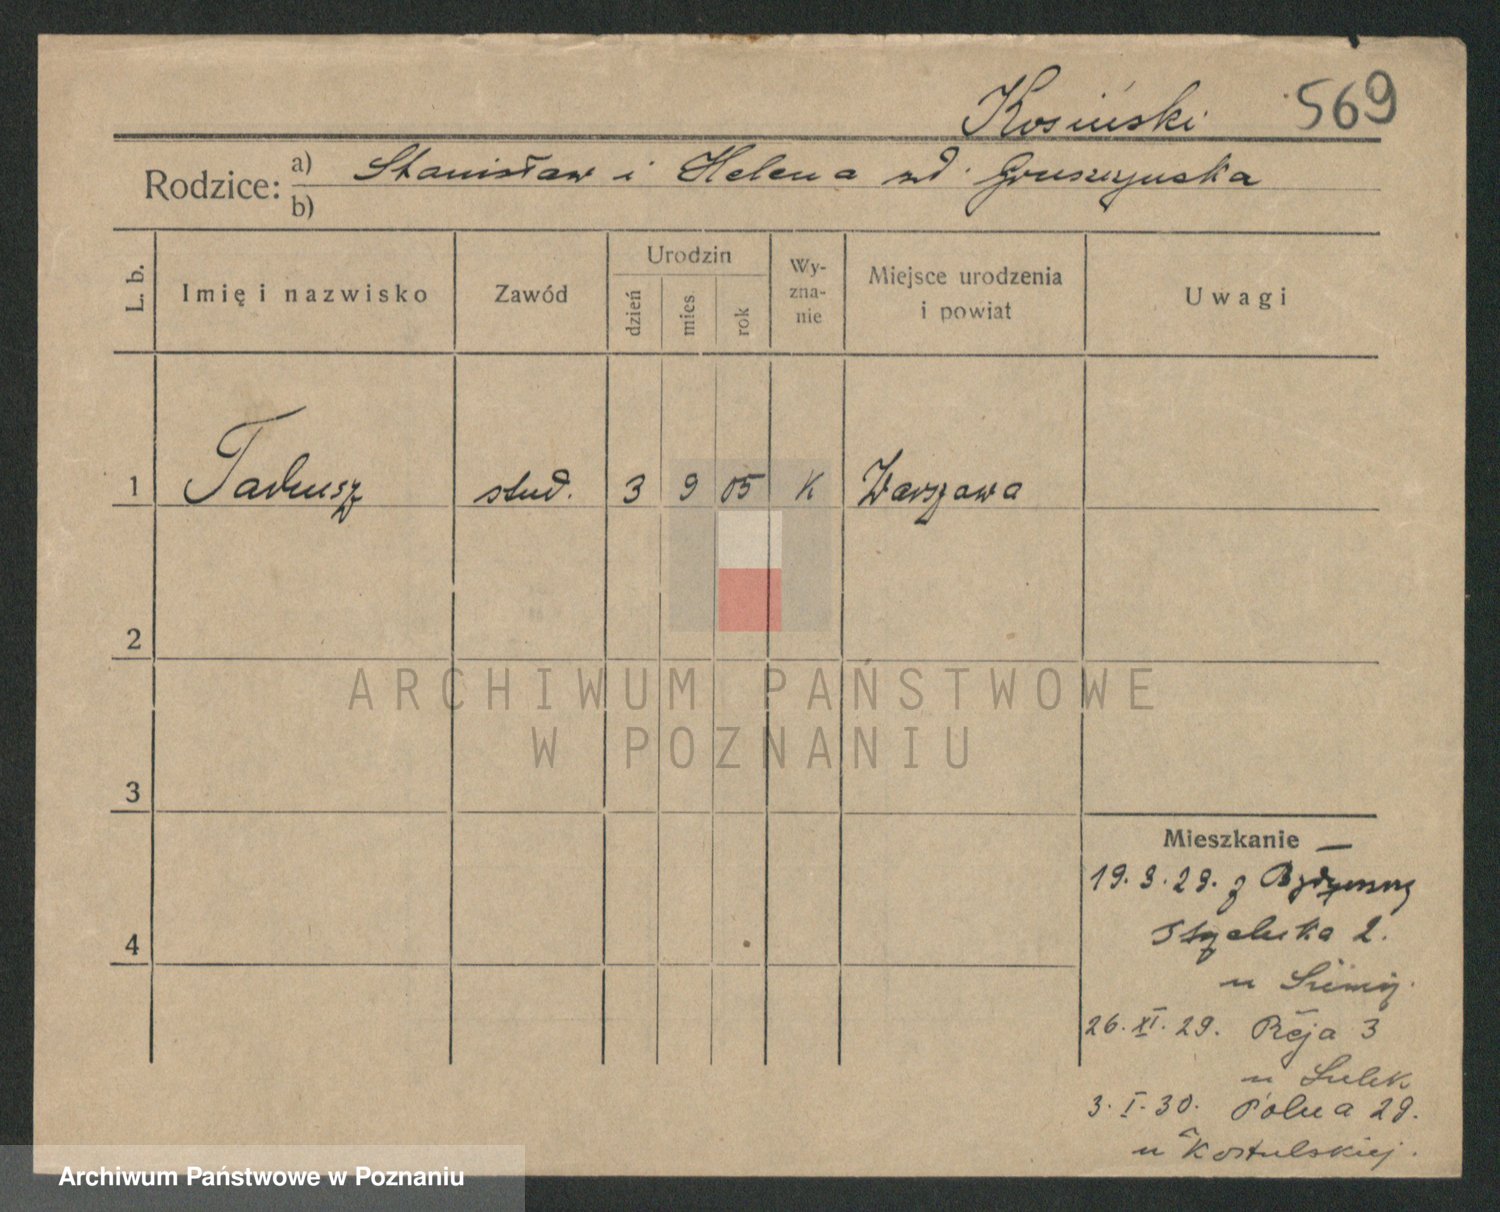 Kosiński 569
Rodzice: a) Stanisław i Helena zd. Gruszczyńska
b)
L. b. Imię i nazwisko Zawód Urodzin Wy-zna-nie Miejsce urodzenia i powiat Uwagi
dzień mies rok
1 Tadeusz stud. 3 9 05 K Warszawa
2
3
4
Mieszkanie
19. 9. 29. z Bydgoszczy
2.
u
26. XI. 29. Reja 3
u
3. I. 30. Polna 29.
u Kostulskiej.
ARCHIWUM PAŃSTWOWE
W POZNANIU
Archiwum Państwowe w Poznaniu